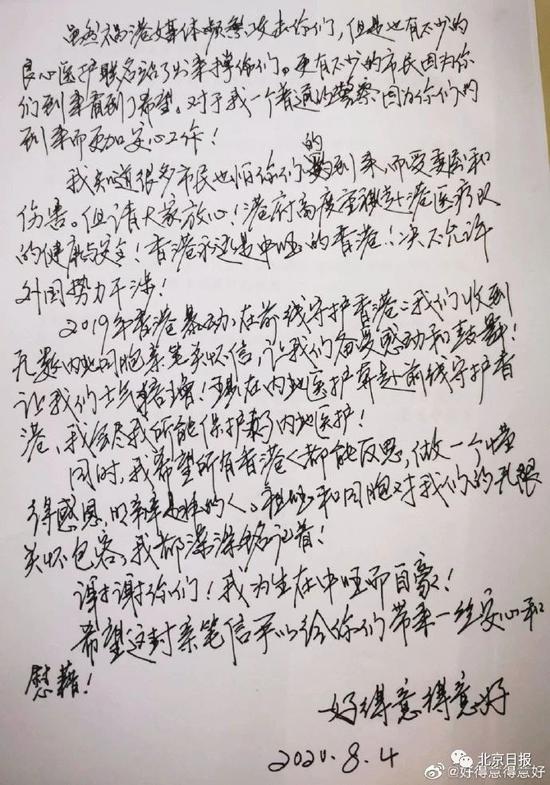 虽然祸港媒体频繁攻击你们，但是也有不少的
良心医护联名站了出来撑你们。更有不少的市民因为你
们到来看到了希望。对于我一个普通的警察因为你们的
到来而更加安心工作！
我知道很多市民也怕你们的到来而受委屈和
伤害。但请大家放心！港府高度重视赴港医疗队
的健康与安全！香港永远是中国的香港！决不允许
外国势力干涉！
2019年香港暴动在前线守护香港，我们收到
无数内地同胞亲笔关怀信，让我们备受感动和鼓舞！
让我们士气倍增！现在内地医护奔赴前线守护香
港，我会尽我所能保护内地医护！
同时，我希望所有香港人都能反思，做一个懂
得感恩，明辨是非的人。祖国和同胞对我们的无限
关怀包容，我都深深铭记着！
谢谢你们！我为生在中国而自豪！
希望这封亲笔信可以给你们带来一丝安心和
慰藉！
好得意得意好
2020.8.4
北京日报
@好得意得意好